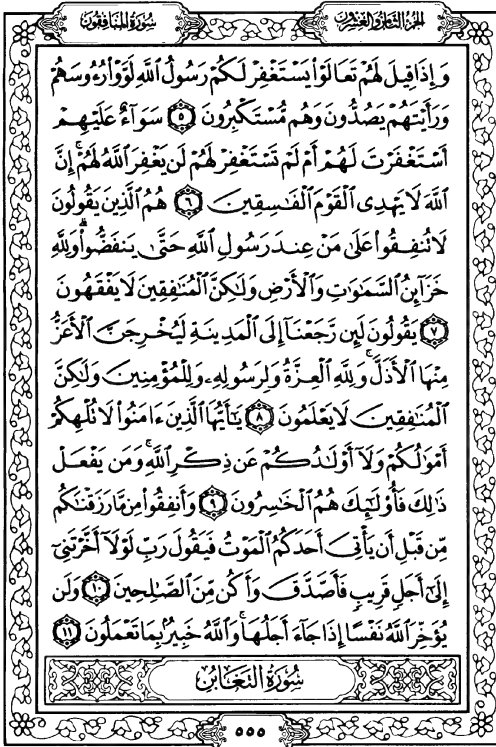 سورة المنافقون
الجزء الثامن والعشرون
وَإِذَا قِيلَ لَهُمْ تَعَالَوْا۟ يَسْتَغْفِرْ لَكُمْ رَسُولُ ٱللَّهِ لَوَّوْا۟ رُءُوسَهُمْ
وَرَأَيْتَهُمْ يَصُدُّونَ وَهُم مُّسْتَكْبِرُونَ ٥ سَوَآءٌ عَلَيْهِمْ
أَسْتَغْفَرْتَ لَهُمْ أَمْ لَمْ تَسْتَغْفِرْ لَهُمْ لَن يَغْفِرَ ٱللَّهُ لَهُمْ ۚ إِنَّ
ٱللَّهَ لَا يَهْدِى ٱلْقَوْمَ ٱلْفَـٰسِقِينَ ٦ هُمُ ٱلَّذِينَ يَقُولُونَ
لَا تُنفِقُوا۟ عَلَىٰ مَنْ عِندَ رَسُولِ ٱللَّهِ حَتَّىٰ يَنفَضُّوا۟ ۗ وَلِلَّهِ
خَزَآئِنُ ٱلسَّمَـٰوَٰتِ وَٱلْأَرْضِ وَلَـٰكِنَّ ٱلْمُنَـٰفِقِينَ لَا يَفْقَهُونَ
٧ يَقُولُونَ لَئِن رَّجَعْنَآ إِلَى ٱلْمَدِينَةِ لَيُخْرِجَنَّ ٱلْأَعَزُّ
مِنْهَا ٱلْأَذَلَّ ۚ وَلِلَّهِ ٱلْعِزَّةُ وَلِرَسُولِهِۦ وَلِلْمُؤْمِنِينَ وَلَـٰكِنَّ
ٱلْمُنَـٰفِقِينَ لَا يَعْلَمُونَ ٨ يَـٰٓأَيُّهَا ٱلَّذِينَ ءَامَنُوا۟ لَا تُلْهِكُمْ
أَمْوَٰلُكُمْ وَلَآ أَوْلَـٰدُكُمْ عَن ذِكْرِ ٱللَّهِ ۚ وَمَن يَفْعَلْ
ذَٰلِكَ فَأُو۟لَـٰٓئِكَ هُمُ ٱلْخَـٰسِرُونَ ٩ وَأَنفِقُوا۟ مِن مَّا رَزَقْنَـٰكُم
مِّن قَبْلِ أَن يَأْتِىَ أَحَدَكُمُ ٱلْمَوْتُ فَيَقُولَ رَبِّ لَوْلَآ أَخَّرْتَنِىٓ
إِلَىٰٓ أَجَلٍ قَرِيبٍ فَأَصَّدَّقَ وَأَكُن مِّنَ ٱلصَّـٰلِحِينَ ١٠ وَلَن
يُؤَخِّرَ ٱللَّهُ نَفْسًا إِذَا جَآءَ أَجَلُهَا ۚ وَٱللَّهُ خَبِيرٌۢ بِمَا تَعْمَلُونَ ١١
سُورَةُ التَّغَابُنِ
٥٥٥